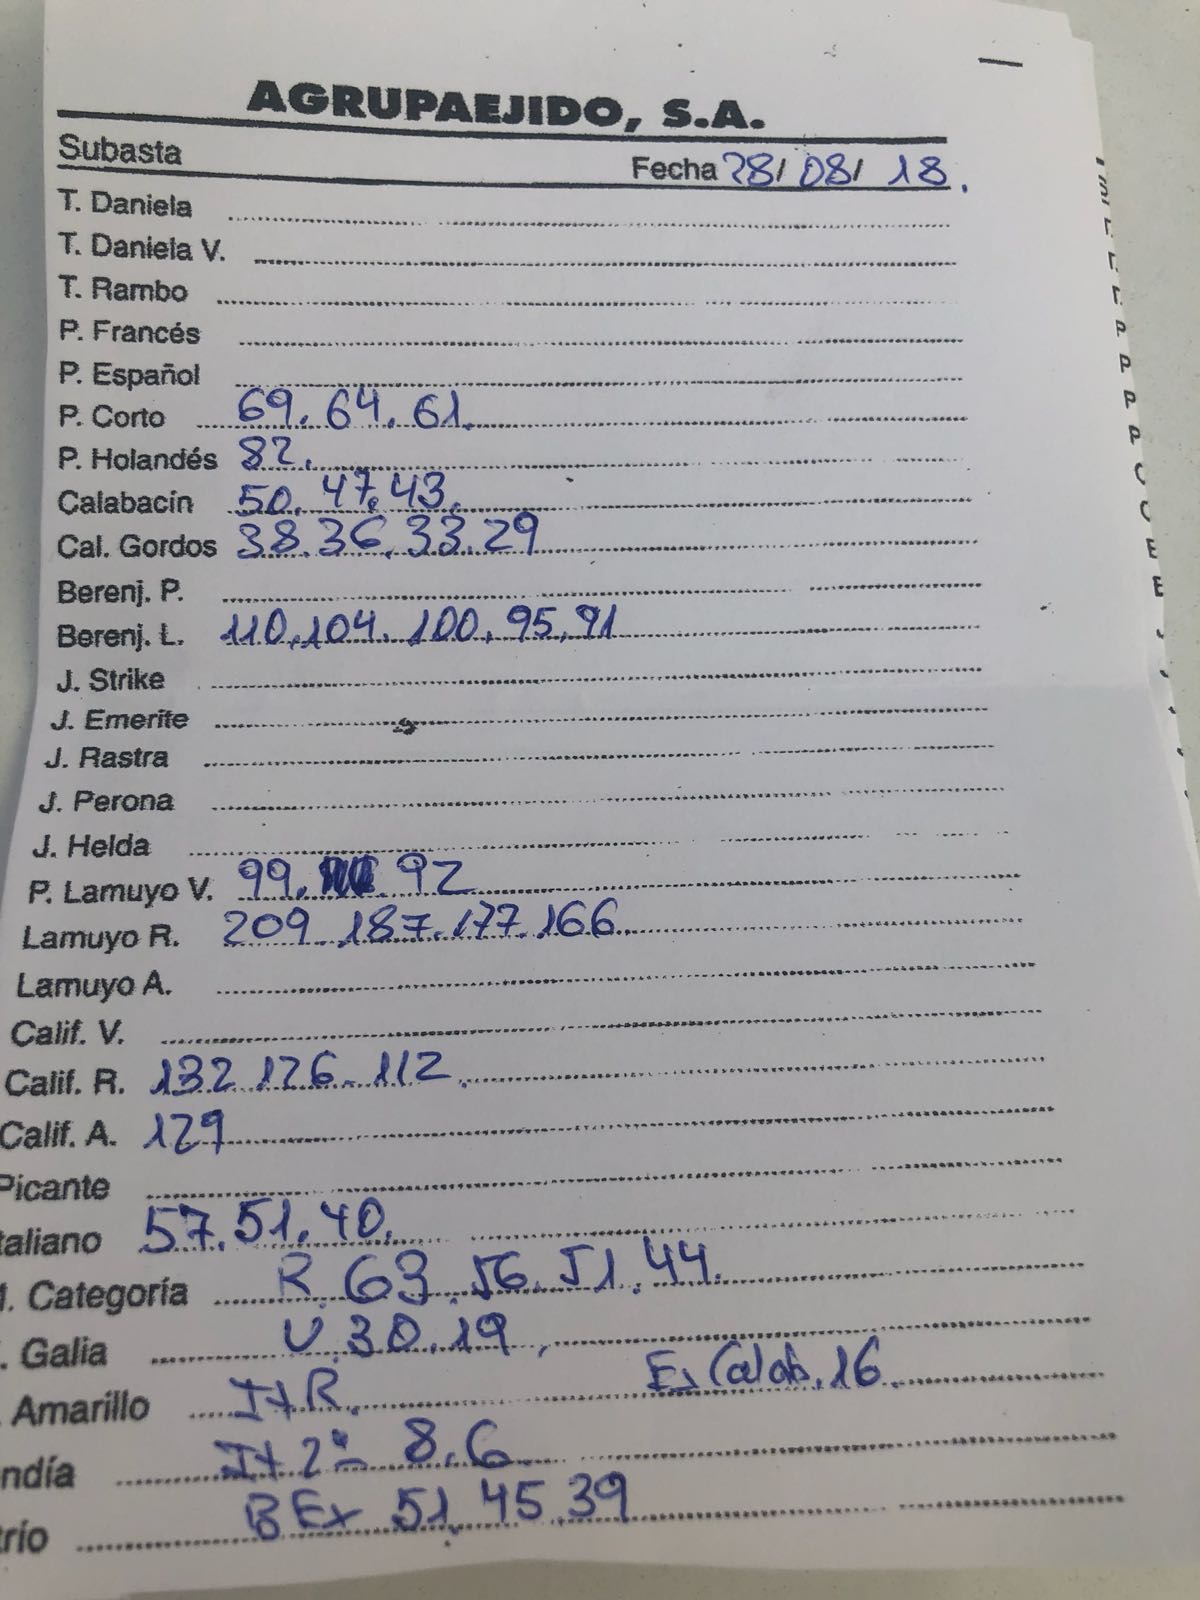 AGRUPAEJIDO, S.A.
Subasta Fecha 28/08/18.
T. Daniela
T. Daniela V.
T. Rambo
P. Francés
P. Español
P. Corto 69. 64. 61.
P. Holandés 82.
Calabacín 50. 47. 43.
Cal. Gordos 38. 36. 33. 29
Berenj. P.
Berenj. L. 110. 104. 100. 95. 91
J. Strike
J. Emerite
J. Rastra
J. Perona
J. Helda
P. Lamuyo V. 99. 92
Lamuyo R. 209. 187. 177. 166
Lamuyo A.
Calif. V.
Calif. R. 132 126. 112.
Calif. A. 129
Picante
taliano 57. 51. 40.
. Categoría R. 63. 56. 51. 44.
. Galia V. 30. 19.
. Amarillo It R. Es Calab. 16
ndía It 2ª 8. 6
trío B Ex 51. 45. 39